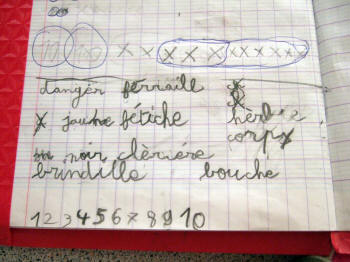 10 100 x x x x x x x x x x
danger ferraille
x jaune fétiche herbe
corps
noir clèrière
brindille bouche
1 2 3 4 5 6 7 8 9 10